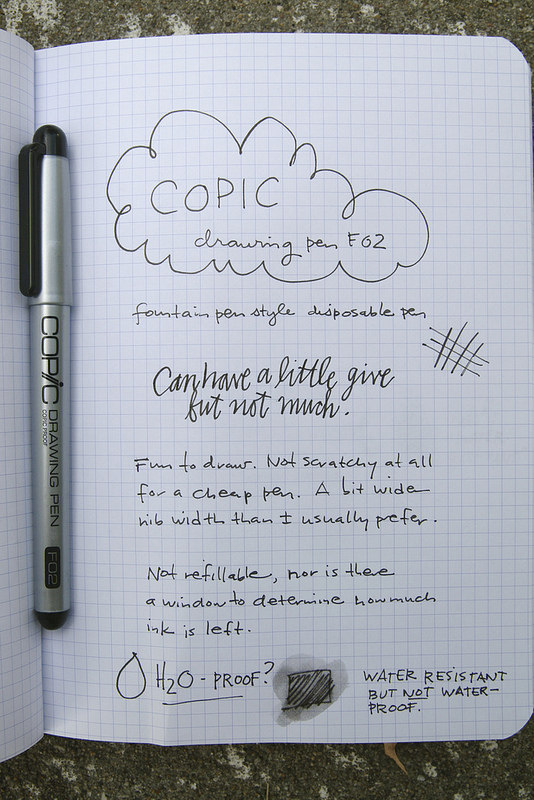 COPIC
drawing pen F02
fountain pen style disposable pen
Can have a little give
but not much.
Fun to draw. Not scratchy at all
for a cheap pen. A bit wide
nib width than I usually prefer.
Not refillable, nor is there
a window to determine how much
ink is left.
H2O-PROOF?
WATER RESISTANT
BUT NOT WATER-
PROOF.
COPIC DRAWING PEN
COPIC PROOF
F02